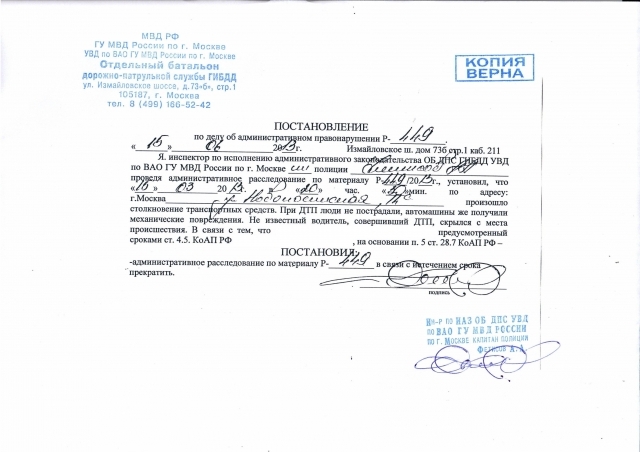 МВД РФ
ГУ МВД России по г. Москве
УВД по ВАО ГУ МВД России по г. Москве
Отдельный батальон
дорожно-патрульной службы ГИБДД
ул. Измайловское шоссе, д.73«б», стр.1
105187, г. Москва
тел. 8 (499) 166-52-42
КОПИЯ
ВЕРНА
ПОСТАНОВЛЕНИЕ
по делу об административном правонарушении Р- 449
« 15 » 06 2013г. Измайловское ш. дом 73б стр.1 каб. 211
Я. инспектор по исполнению административного законодательства ОБ ДПС ГИБДД УВД
по ВАО ГУ МВД России по г. Москве полиции
проведя административное расследование по материалу Р-449 /2013г., установил, что
« 15 » 03 2013г. в «20» час. мин. по адресу:
г.Москва произошло
столкновение транспортных средств. При ДТП люди не пострадали, автомашины же получили
механические повреждения. Не известный водитель, совершивший ДТП, скрылся с места
происшествия. В связи с тем, что предусмотренный
сроками ст. 4.5. КоАП РФ , на основании п. 5 ст. 28.7 КоАП РФ –
ПОСТАНОВИЛ:
-административное расследование по материалу Р- 449 в связи с истечением срока
прекратить.
подпись
Ин-р по ИАЗ ОБ ДПС УВД
по ВАО ГУ МВД РОССИИ
по г. Москве капитан полиции
Фетисов А.А.